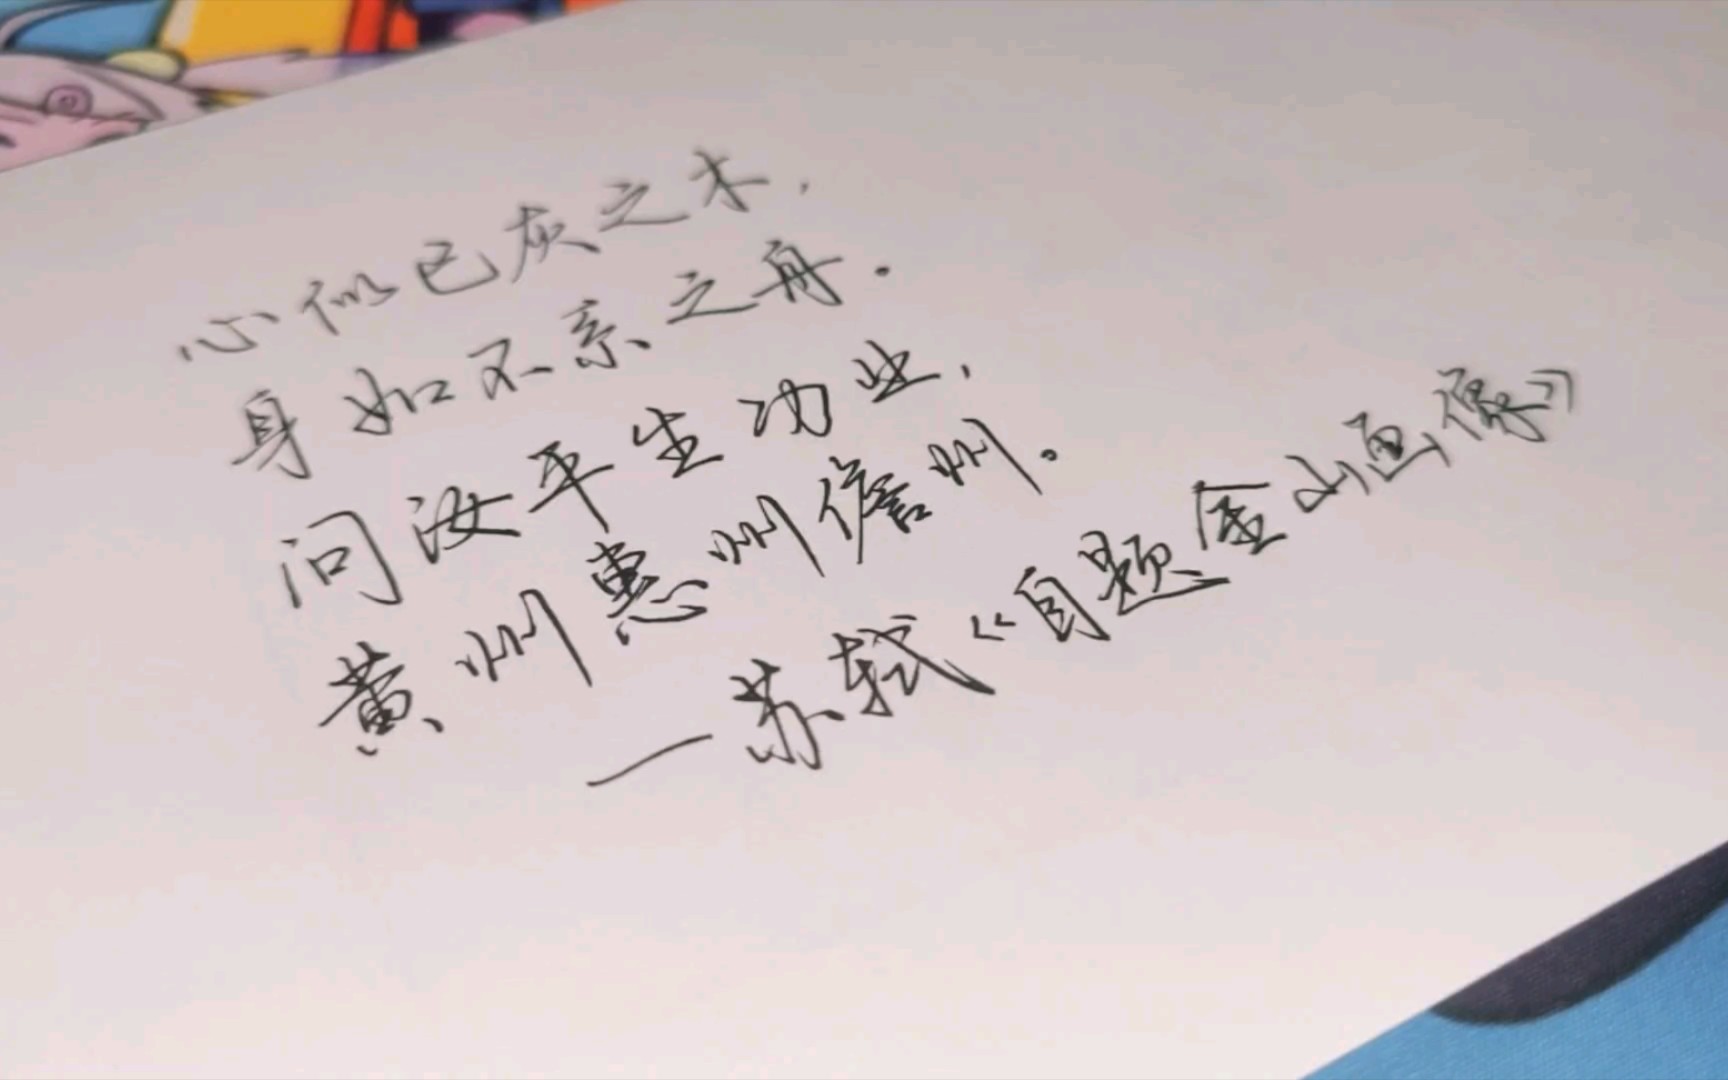 心似已灰之木，
身如不系之舟．
问汝平生功业，
黄州惠州儋州。
一苏轼《自题金山画像》